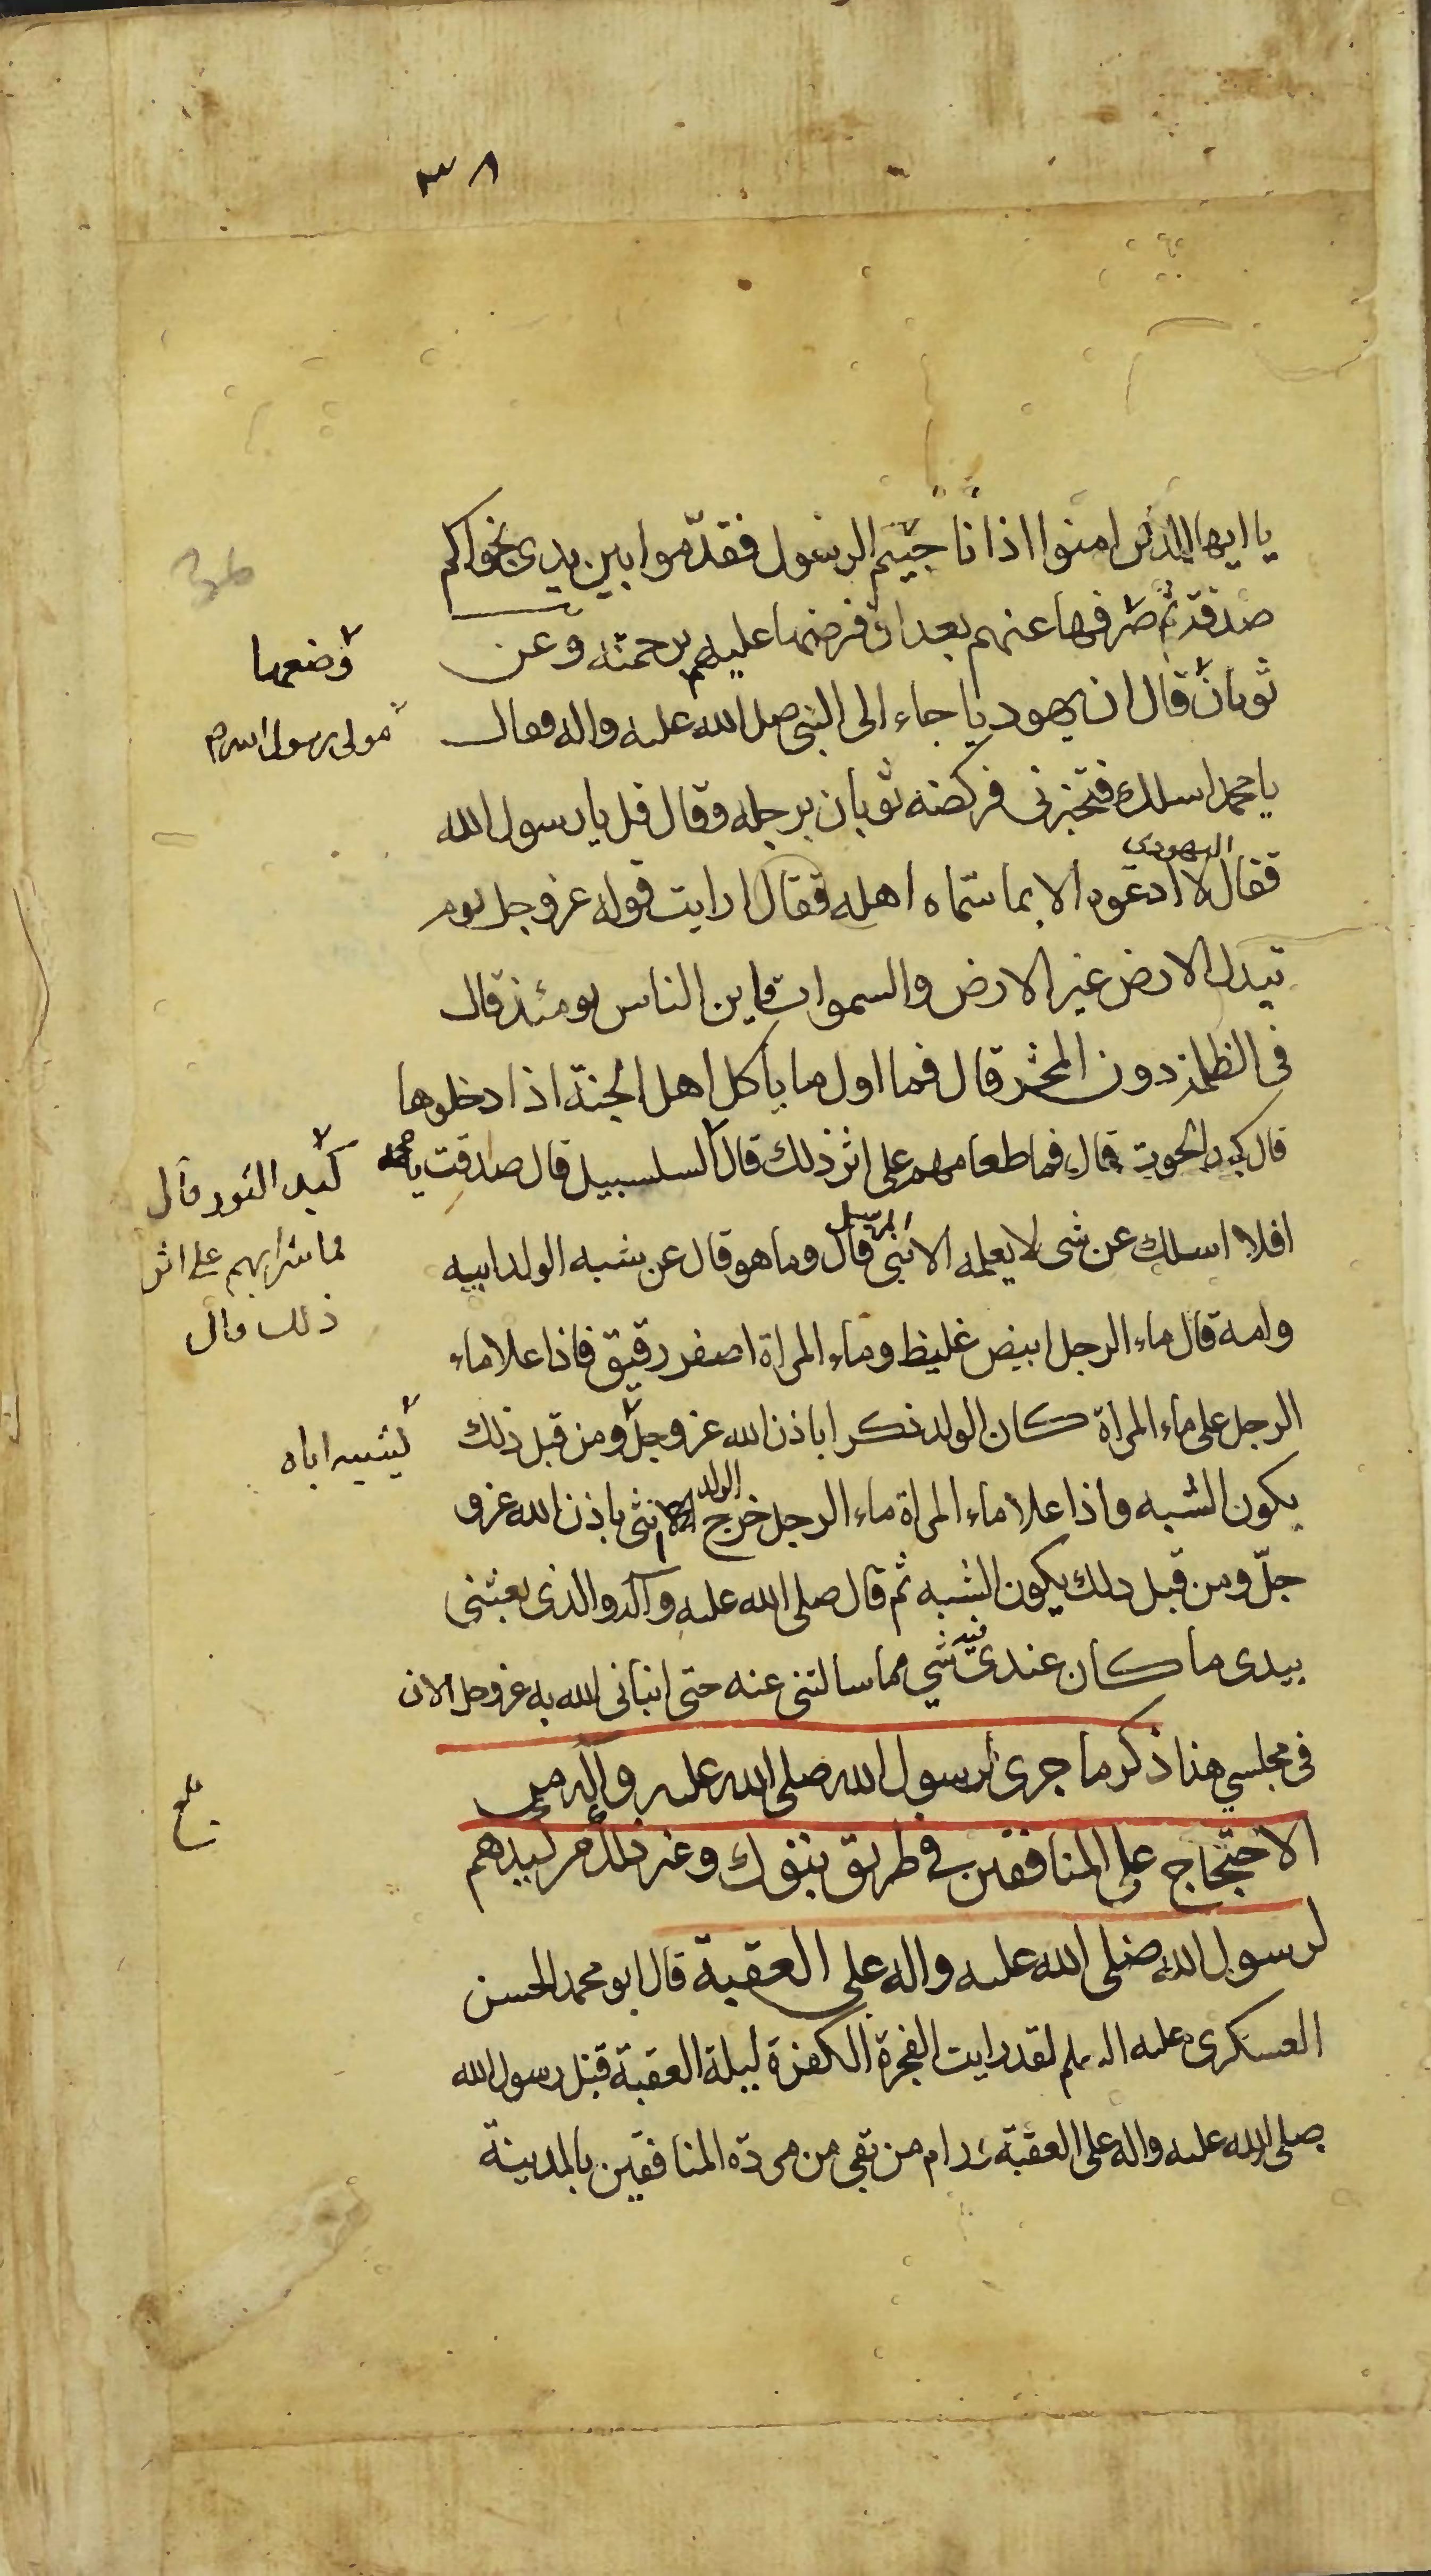 ٣٨
يا ايها الذين امنوا اذا ناجيتم الرسول فقدّموا بين يدى نجواكم
صدقة ثم صرفها عنهم بعد ان فرضها عليهم برحمته وعن
وضعها
ثوبان قال ان يهوديا جاء الى النبى صلى الله عليه واله فقال
مولى رسول الله
يا محمد اسلك فتخبرنى فركضه ثوبان برجله وقال قل يا رسول الله
اليهودى
فقال لا ادعوه الا بما سمّاه اهله فقال ارايت قوله عز وجل يوم
تبدل الارض غير الارض والسموات اين الناس يومئذ قال
فى الظلمة دون المحشر قال فما اول ما ياكل اهل الجنة اذا دخلوها
قال كبد الحوت قال فما طعامهم على اثر ذلك قال السلسبيل قال صدقت يا محمد
كبد الثور قال
فما شرابهم على اثر
ذلك قال
افلا اسلك عن شى لا يعلمه الا نبى قال وما هو قال عن شبه الولد ابيه
وامه قال ماء الرجل ابيض غليظ وماء المراة اصفر رقيق فاذا علا ماء
الرجل على ماء المراة كان الولد ذكرا باذن الله عز وجلّ ومن قبل ذلك
يشبه اباه
الولد
يكون الشبه واذا علا ماء المراة ماء الرجل خرج انثى باذن الله عز و
جلّ ومن قبل ذلك يكون الشبه ثم قال صلى الله عليه وآله والذى بعثنى
فيه
بيدى ما كان عندى شي مما سالتنى عنه حتى انبانى الله به عز وجل الان
فى مجلسي هذا ذكر ما جرى لرسول الله صلى الله عليه وآله من
بلغ
الاحتجاج على المنافقين في طريق تبوك وغير ذلك من كيدهم
لرسول الله صلى الله عليه واله على العقبة قال ابو محمد الحسن
العسكرى عليه السلم لقد رايت الفجرة الكفرة ليلة العقبة قتل رسول الله
صلى الله عليه واله على العقبة ورام من بقى من مردة المنافقين بالمدينة